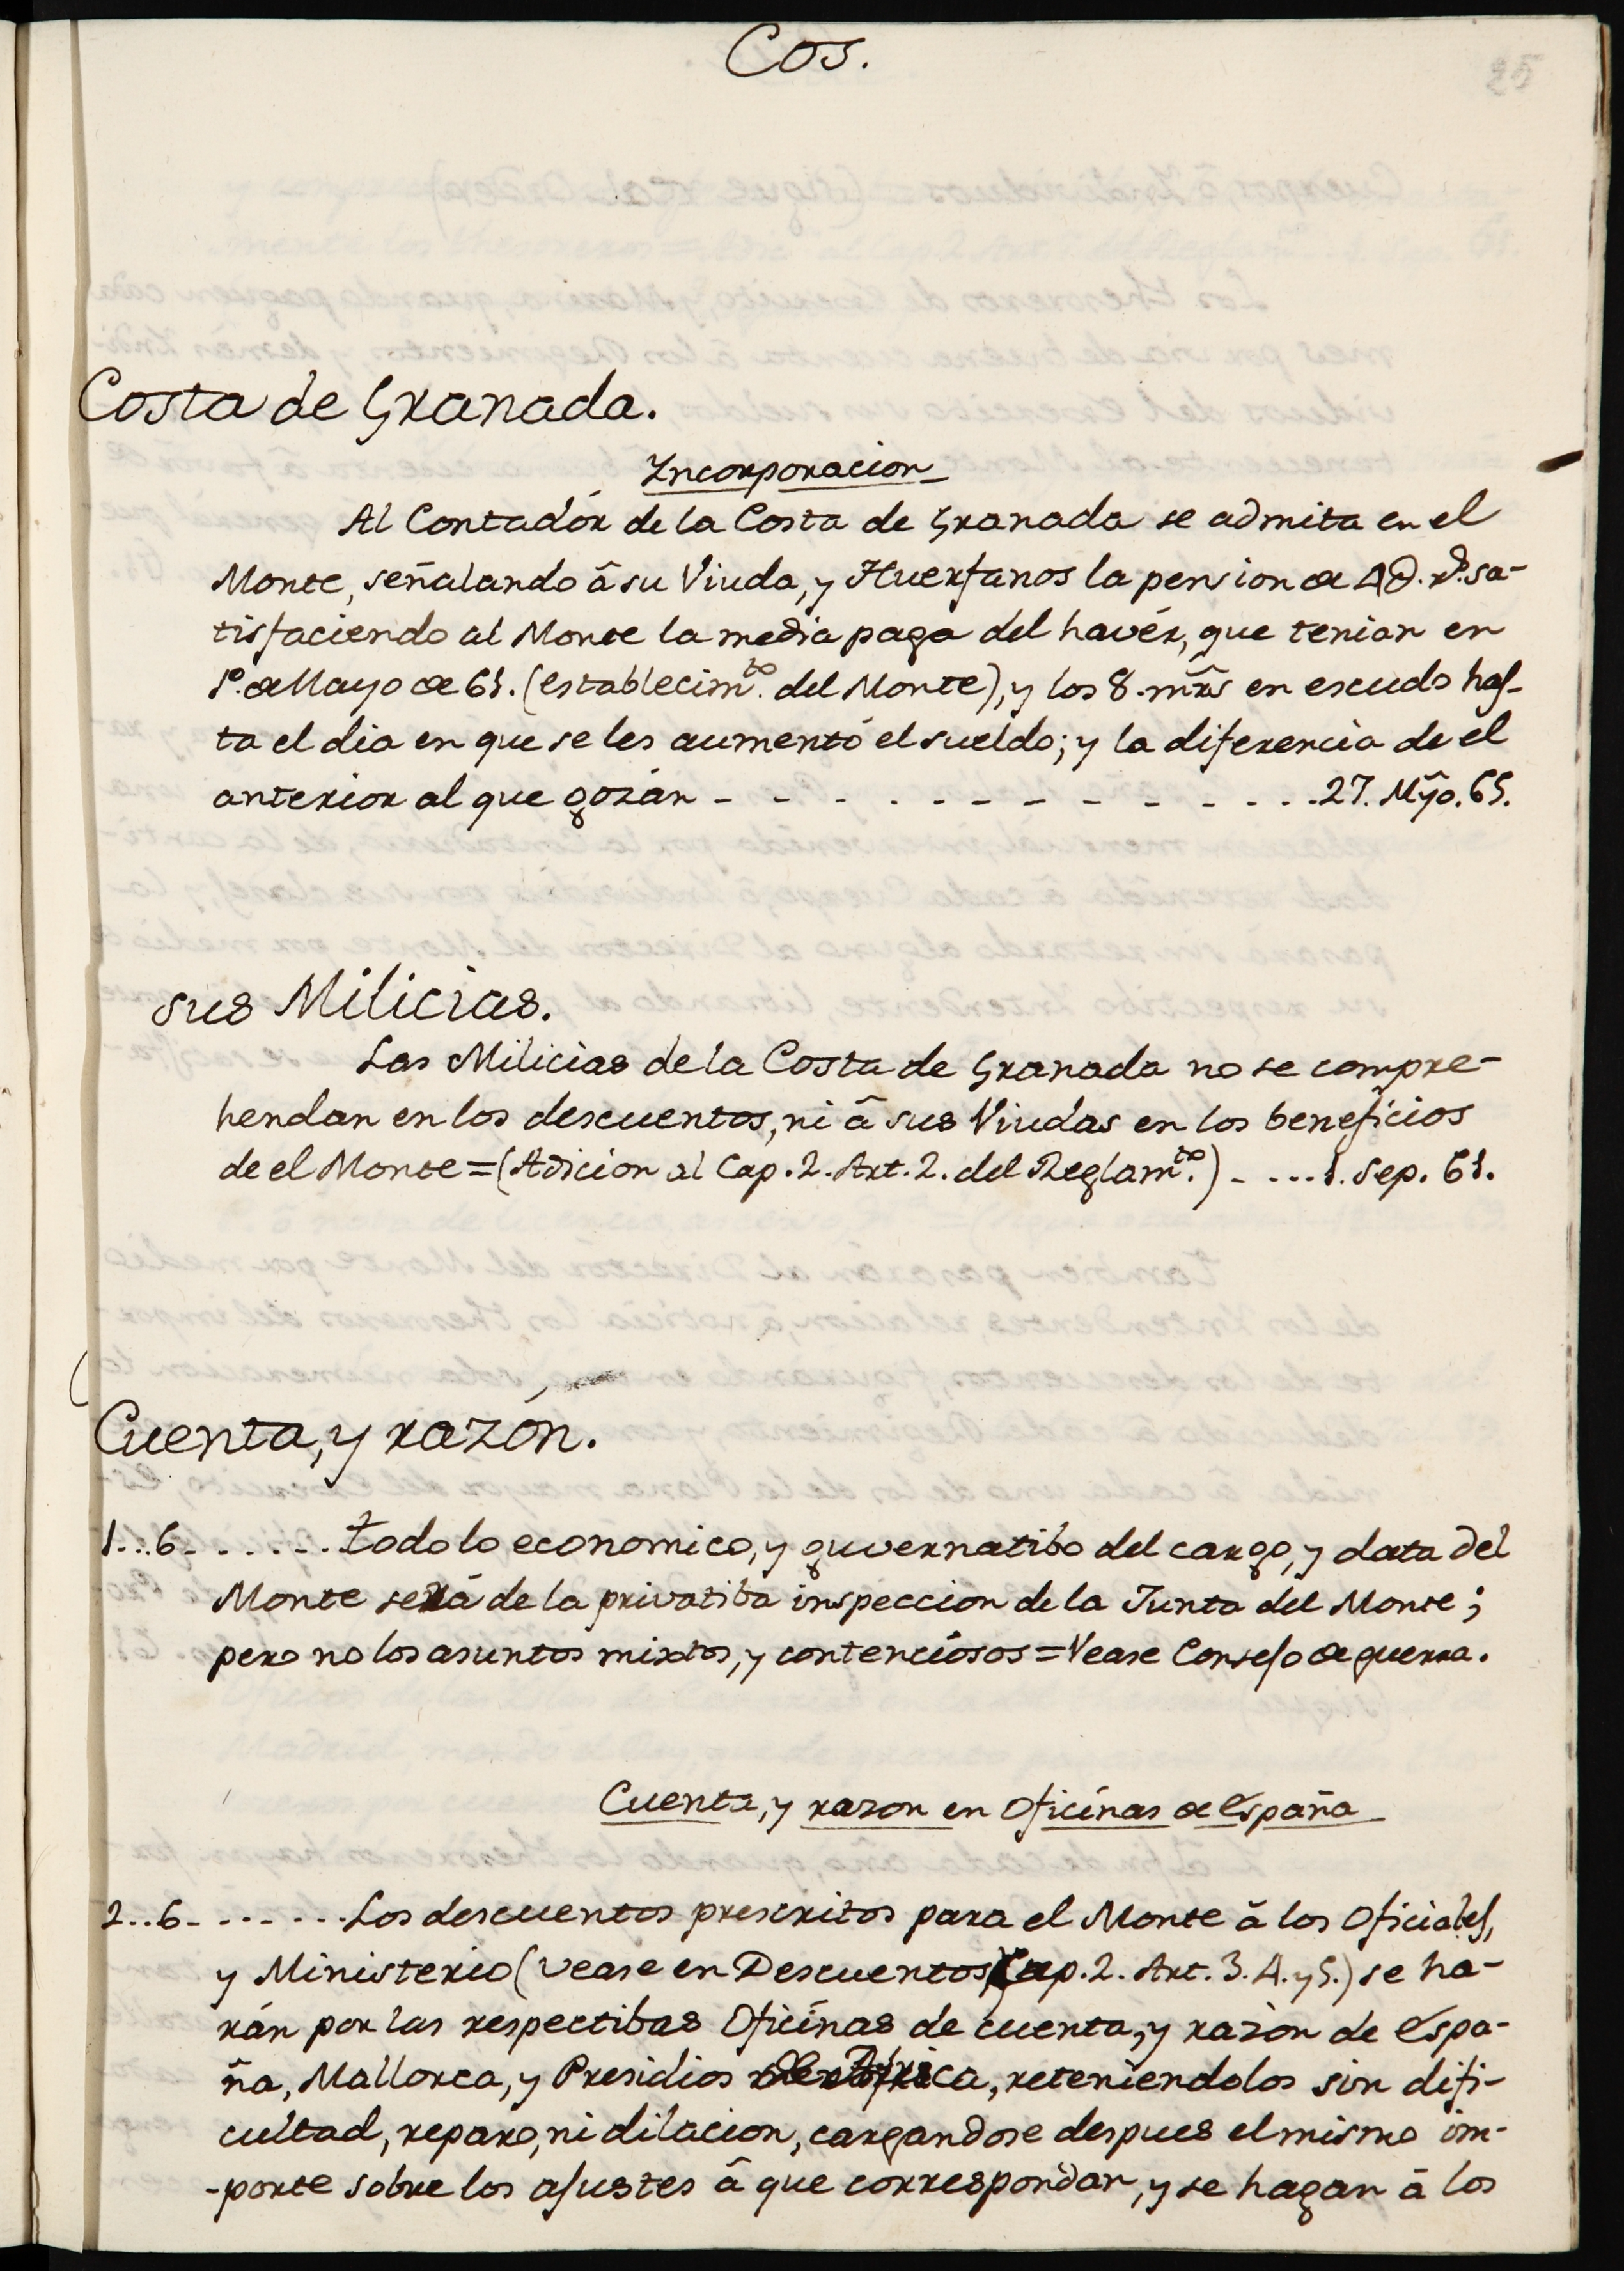 Cos.
25
Costa de Granada.
Incorporacion
Al Contadór de la Costa de Granada se admita en el
Monte, señalando â su Viuda, y Huerfanos la pension de 4∂. r.s sa-
tisfaciendo al Monte la media paga del havér, que tenian en
1º. de Mayo de 61. (establecim.to del Monte), y los 8. mrs̃ en escudo has-
ta el dia en que se les aumentó el sueldo; y la diferencia de el
anterior al que gozán - - - - - - - - - - - - . . 27. Mỹo. 65.
sus Milicias.
Las Milicias de la Costa de Granada no se compre-
hendan en los descuentos, ni â sus Viudas en los beneficios
de el Monte = (Adicion al Cap. 2. Art. 2. del Reglam.to) - - - - . 1. Sep. 61.
Cuenta, y razón.
1...6 - . . . . - . . todo lo economico, y guvernatibo del cargo, y data del
Monte será de la privatiba inspeccion de la Junta del Monte;
pero no los asuntos mixtos, y contenciósos = Vease Consejo de guerra.
Cuenta, y razon en Oficínas de España
2...6 - - - - - - . . Los descuentos prescritos para el Monte â los Oficiales,
y Ministerio (vease en Descuentos) Cap. 2. Art. 3. 4. y 5.) se ha-
rán por las respectibas Oficínas de cuenta, y razòn de Espa-
ña, Mallorca, y Presidios de Africa, reteniendolos sin difi-
cultad, reparo, ni dilacion, cargandose despues el mismo im-
-porte sobre los ajustes â que correspondan, y se hagan â los